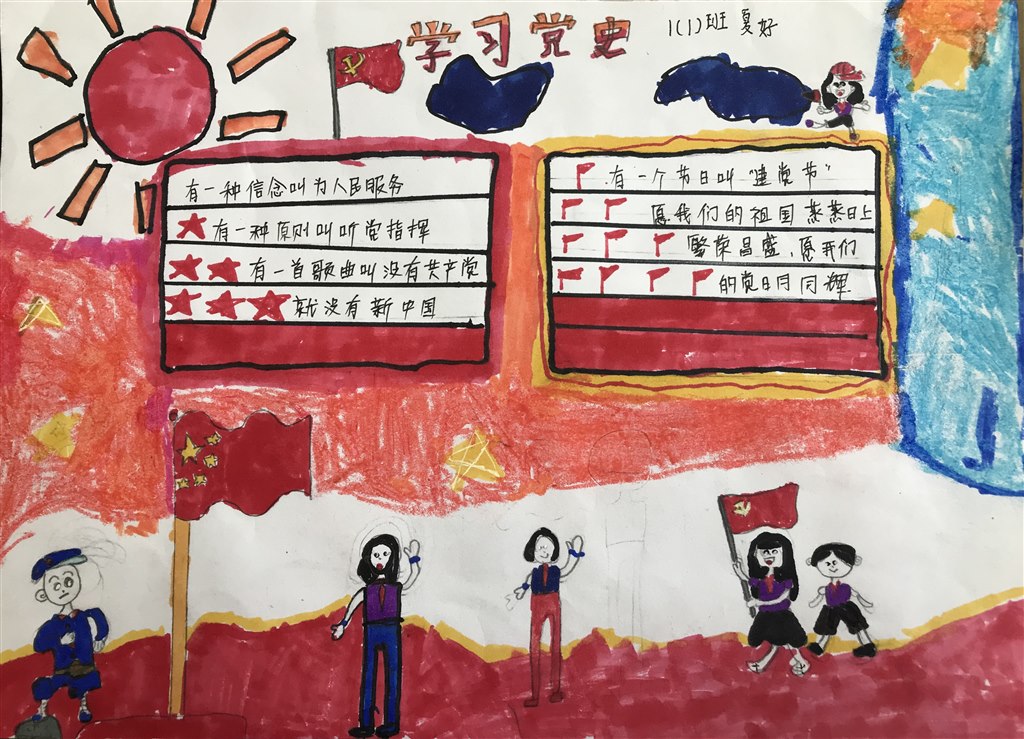 学习党史
1(1)班 夏好
有一种信念叫为人民服务
有一种原则叫听党指挥
有一首歌曲叫没有共产党
就没有新中国
有一个节日叫"建党节"
愿我们的祖国蒸蒸日上
繁荣昌盛,愿我们
的党日月同辉